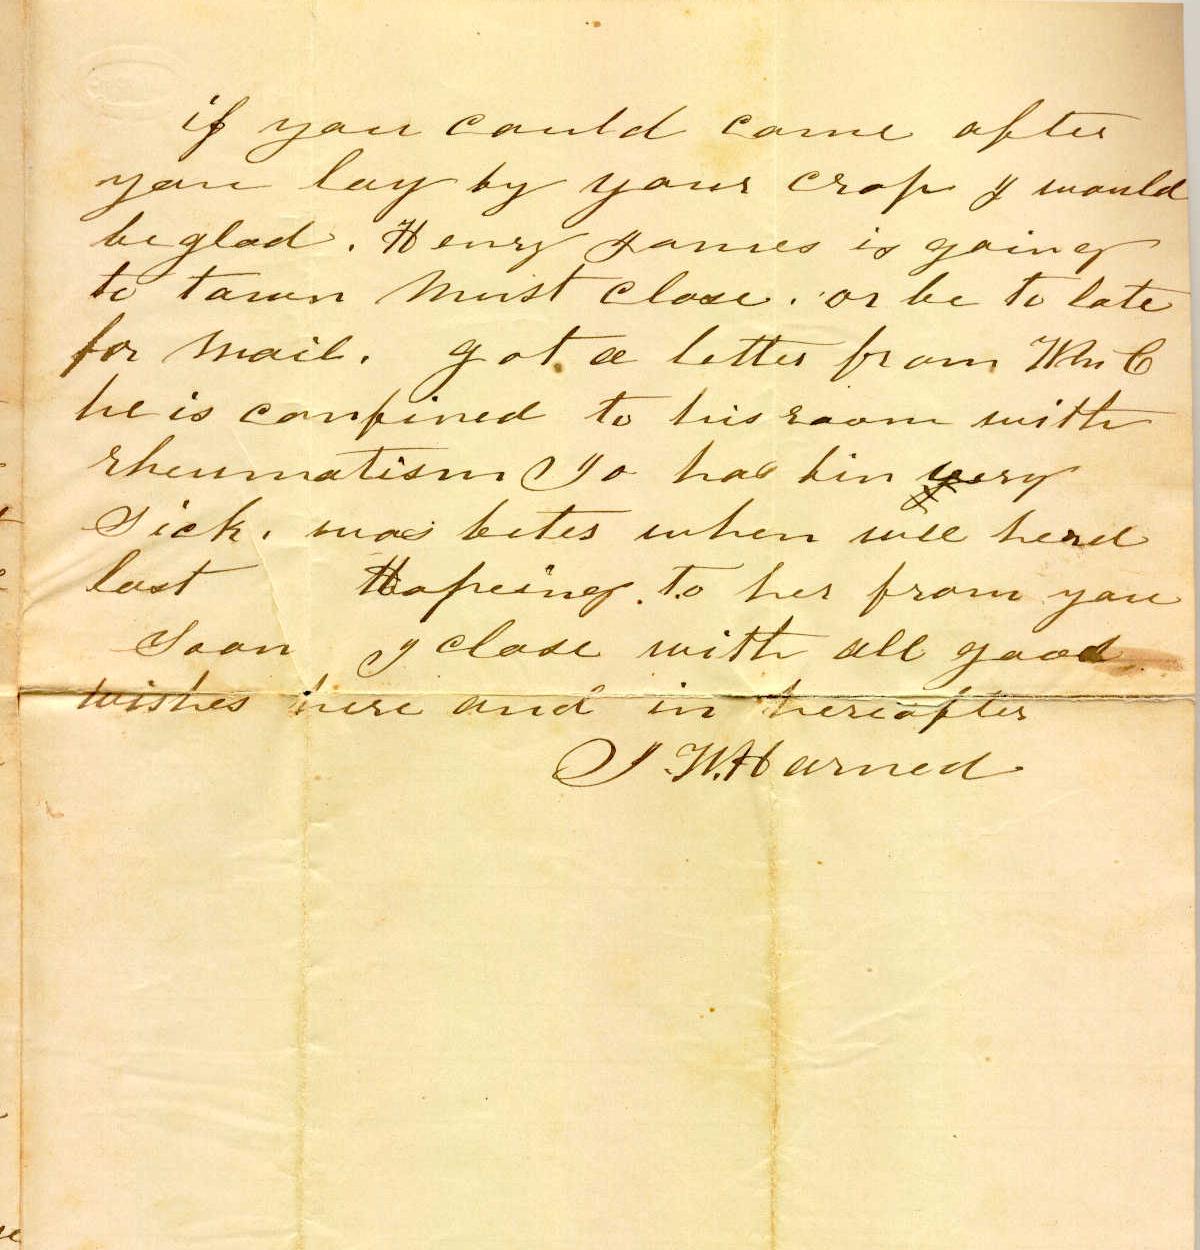 if you could come after
you lay by your crop I would
be glad. Henry James is going
to town Must close. or be to late
for Mail. got a letter from Wm C
he is confined to his room with
rheumatism Jo has bin very
Sick. was beter when wee herd
last Hopeing to her from you
Soon I close with all good
wishes here and in hereafter
J. W. Harned